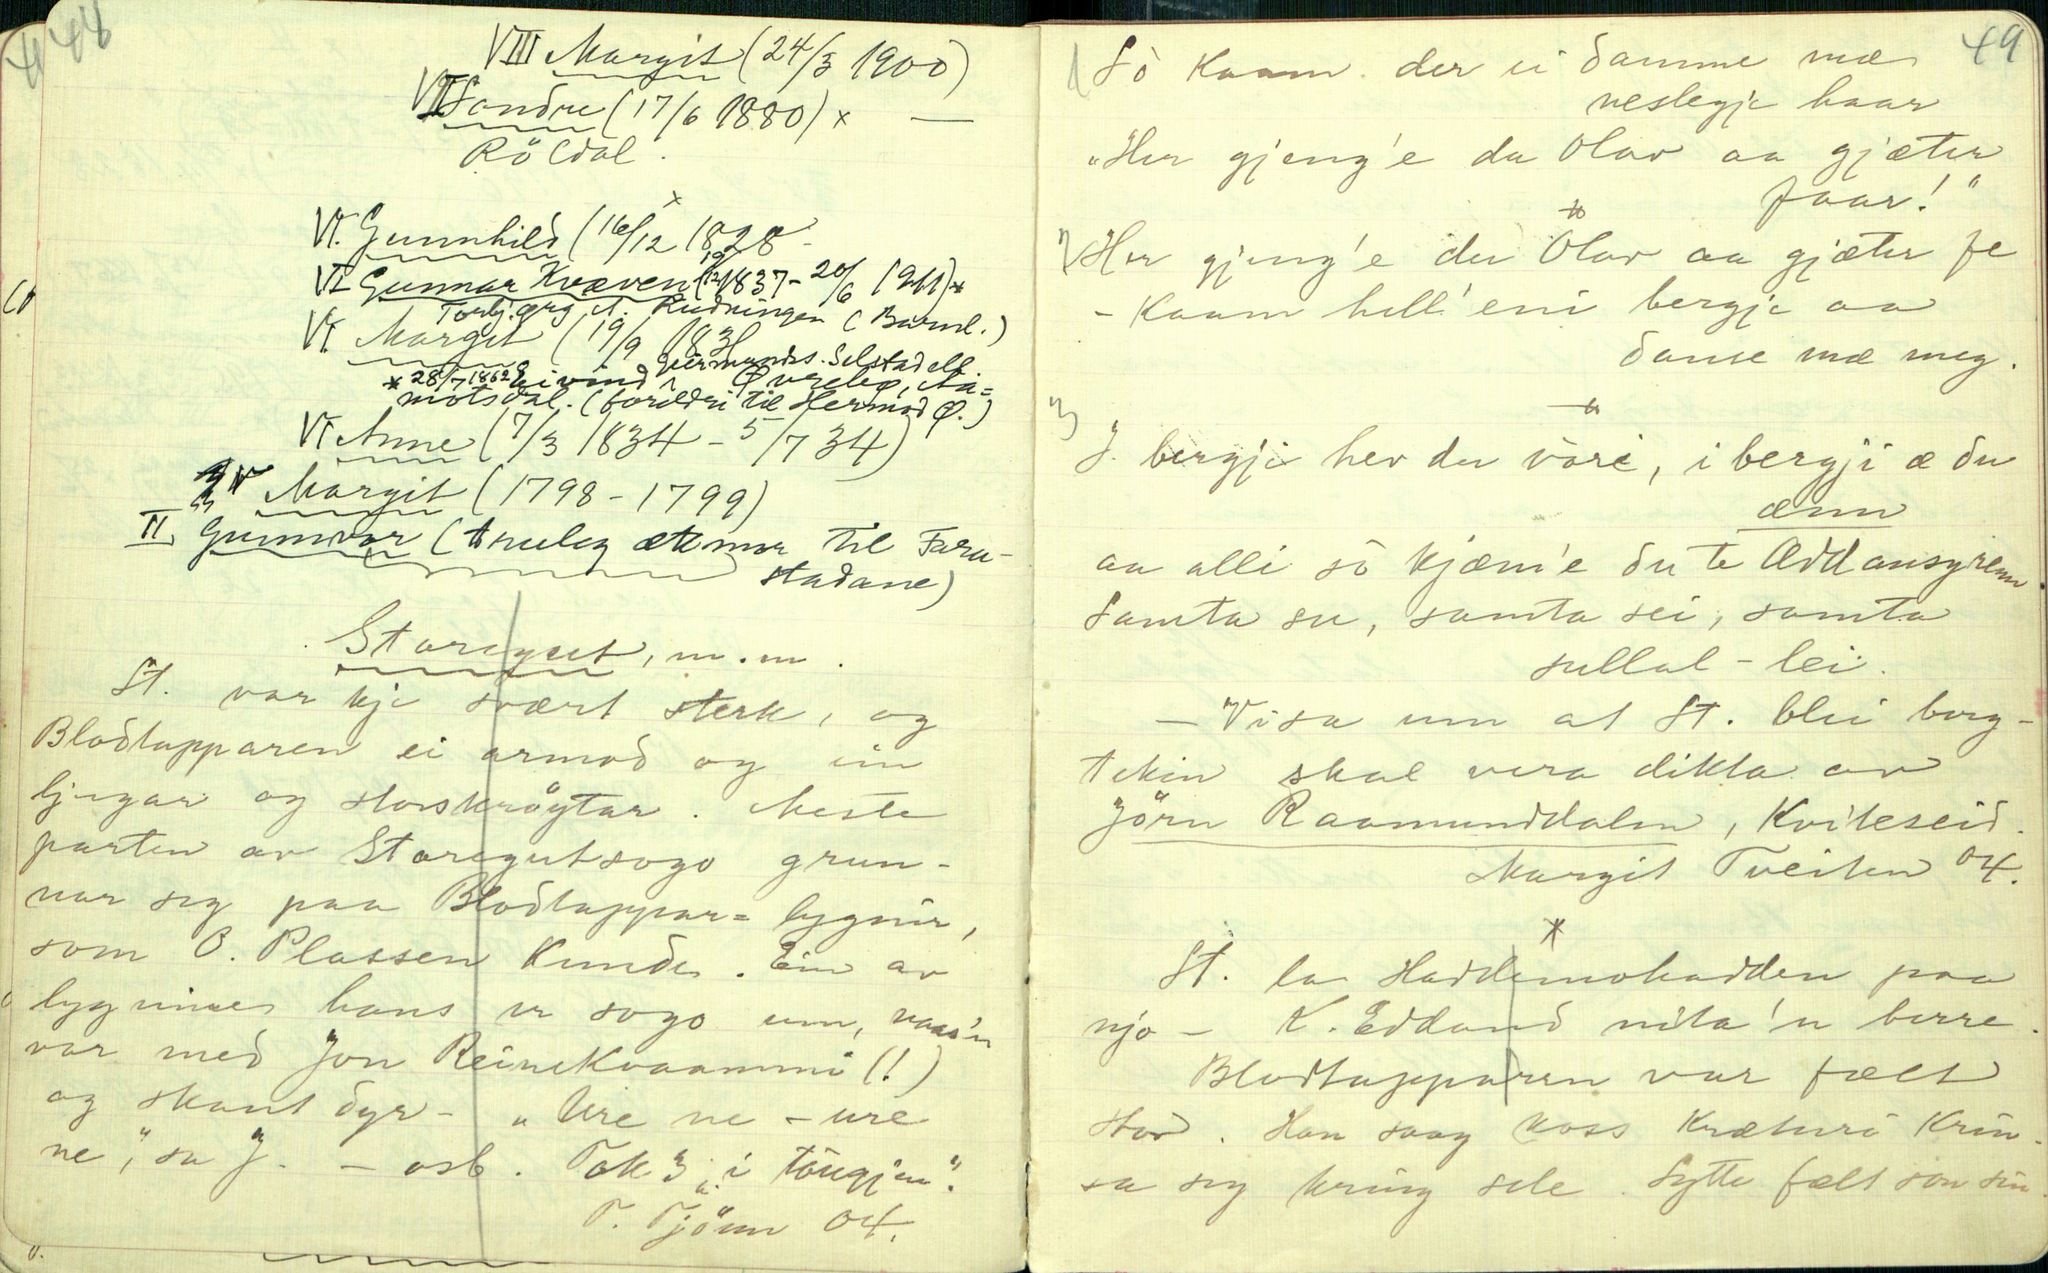 48
VIII Margit (24/3 1900)
VII Sondre (17/6 1880) x —
Röldal.
VI. Gunnhild (16/12 1828 -
VI Gunnar Kvæven (1837 - 20/6 1911) *
Torbjørg A. Rudningen (Barnl.)
VI. Margit (19/9
* 28/7 1862 Eivind Øverbø, Aa=
motsdal. (foreldri til Hermod Ø.)
VI Anne (7/3 1834 - 5/7 34)
IV Margit (1798 - 1799)
II. Gunnvor (truleg ætemor til Faru-
stadane)
Storegut, m.m.
St. var kje svært sterk, og
Blodtapparen ei armod og ein
ljugar og storskröytar. Meste
parten av Storegutsogo grun-
nar seg paa Blodtappar= lygnir,
som O. Plassen kunde. Ein av
lygnines hans er sogo um, naar'n
var med Jon Reinekvaammi (!)
og skaut dyr - „Ure ne - ure
ne", sa J. - osb. Tok 3 „i töugjen".
T. Tjönn 04.
49
1 Sò kaam der ei damme mæ
neslegje haar
„Her gjeng'e du Olav aa gjæter
faar!"
2) Her gjeng'e du Olav aa gjæter fe
- kaam hell' eni bergje aa
danse mæ meg.
3) I bergje hev du vòre, i bergji æ du
ænn
aa alli sò kjæm'e du te Øddansgrenn
Samta su, samta sei, samta
sullal - lei.
— Visa um at St. blei berg-
tekin skal vera dikta av
Jörn Raamunddalen, Kviteseid.
Margit Tveiten 04.
*
St. la Haddemohadden paa
njo - K. Eddand nita'n berre.
Blodtapparen var fælt
stor. Han saag koss kræturi krin-
sa seg kring sele. Sytte fælt son sin